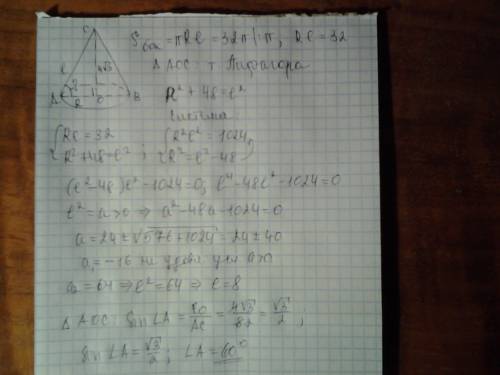 C
l
4√3
A
R
O
B
S бок = πRl = 32π |:π, Rl = 32
Δ AOC: т. Пифагора
R² + 48 = l²
Система:
{ Rl = 32
R² + 48 = l² ; { R²l² = 1024,
R² = l² - 48
(l² - 48) l² - 1024 = 0; l⁴ - 48l² - 1024 = 0
l² = a > 0 ⇒ a² - 48a - 1024 = 0
a = 24 ± √576 + 1024 = 24 ± 40
a₁ = -16 не удовл. усл. a>0
a₂ = 64 ⇒ l² = 64 ⇒ l = 8
Δ AOC: sin ∠A = CO/AC = 4√3/8 = √3/2,
sin ∠A = √3/2; ∠A = 60°